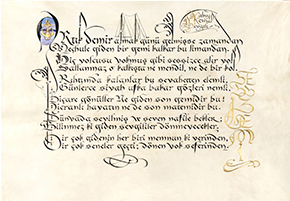 Artık demir almak günü gelmişse zamandan
Meçhule giden bir gemi kalkar bu limandan.
Hiç yolcusu yokmuş gibi sessizce alır yol
Sallanmaz o kalkışta ne mendil, ne de bir kol.
Rıhtımda kalanlar bu seyahatten elemli,
Günlerce siyah ufka bakar gözleri nemli,
Biçare gönüller Ne giden son gemidir bu!
Hicranlı hayatın ne de son matemidir bu.
Dünyada sevilmiş ve seven nafile bekler;
Bilinmez ki giden sevgililer dönmeyecekler.
Bir çok gidenin her biri memnun ki yerinden
Bir çok seneler geçti; dönen yok seferinden.